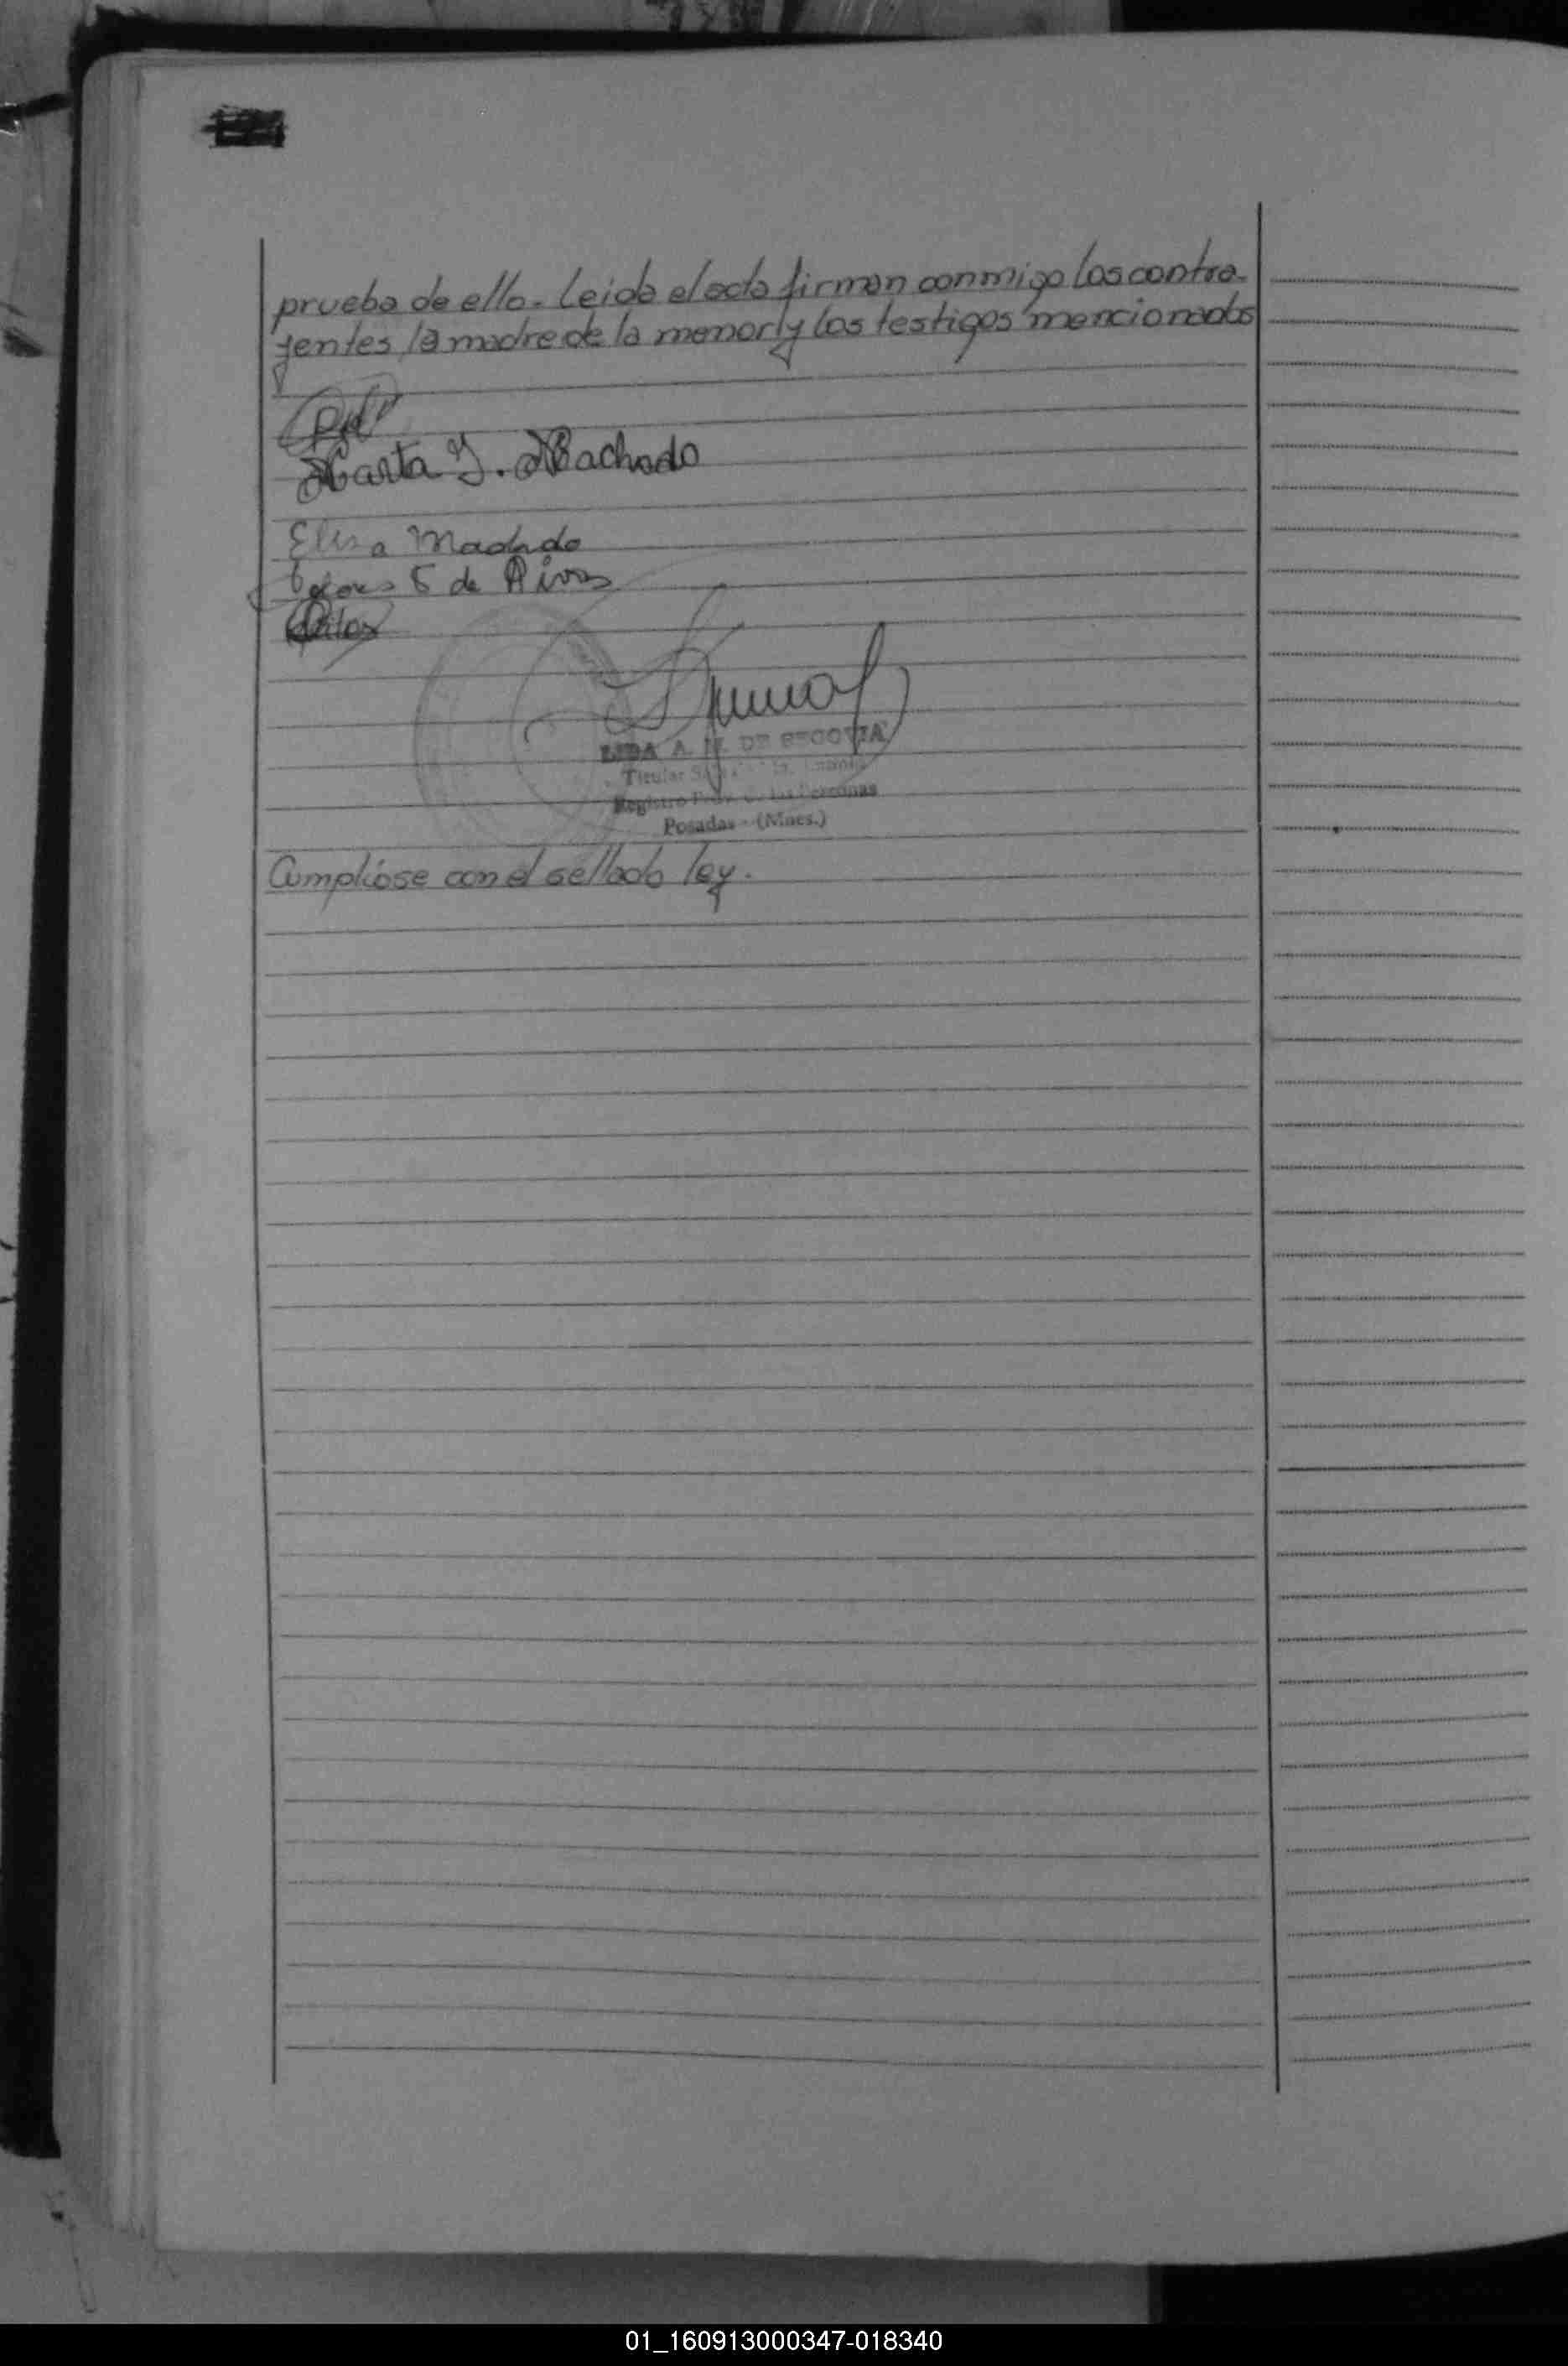 prueba de ello. Leida el acta firman conmigo los contra-
yentes, la madre de la menor y los testigos mencionados
Marta Y. Machado
Elisa Machado
de Rivas
LIDA A. M. DE SEGOVIA
Titular
Registro Prov. de las Personas
Posadas - (Mnes.)
Cumplióse con el sellado ley.
01_160913000347-018340